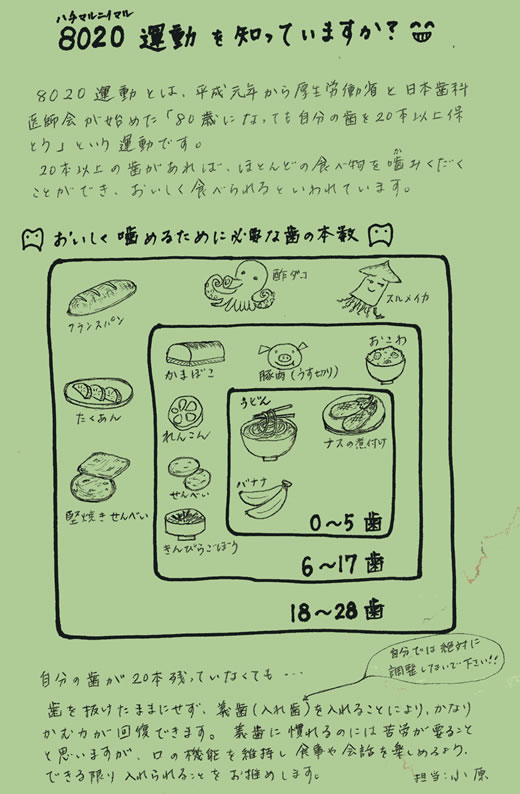 ハチマルニイマル
8020 運動 を知っていますか？
8020 運動とは、平成元年から厚生労働省と日本歯科
医師会が始めた「80歳になっても自分の歯を20本以上保
とう」という運動です。
20本以上の歯があれば、ほとんどの食べ物を噛みくだく
か
ことができ、おいしく食べられるといわれています。
おいしく噛めるために必要な歯の本数
フランスパン
酢ダコ
スルメイカ
たくあん
堅焼きせんべい
かまぼこ
豚肉(うす切り)
おこわ
れんこん
せんべい
きんぴらごぼう
うどん
ナスの煮付け
バナナ
0～5 歯
6～17 歯
18～28 歯
自分では絶対に
調整しないで下さい!!
自分の歯が20本残っていなくても…
歯を抜けたままにせず、義歯(入れ歯)を入れることにより、かなり
かむ力が回復できます。義歯に慣れるのには苦労が要ること
と思いますが、口の機能を維持し食事や会話を楽しめるよう、
できる限り入れられることをお推めします。
担当：小原